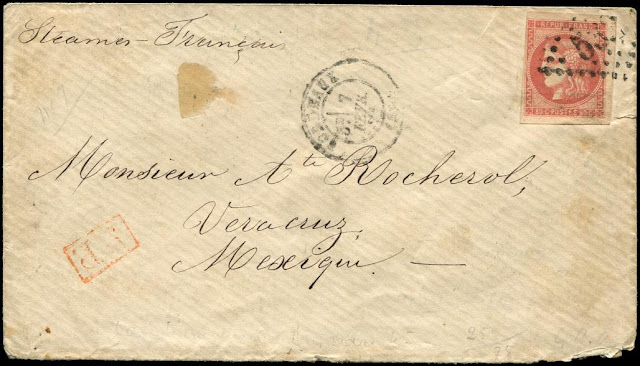 Steamer-Français
REPUB. FRANC.
80 C POSTES 80 C
BORDEAUX
7
FEVR.
Monsieur Ate Rocherol,
Veracruz,
Mexique. —